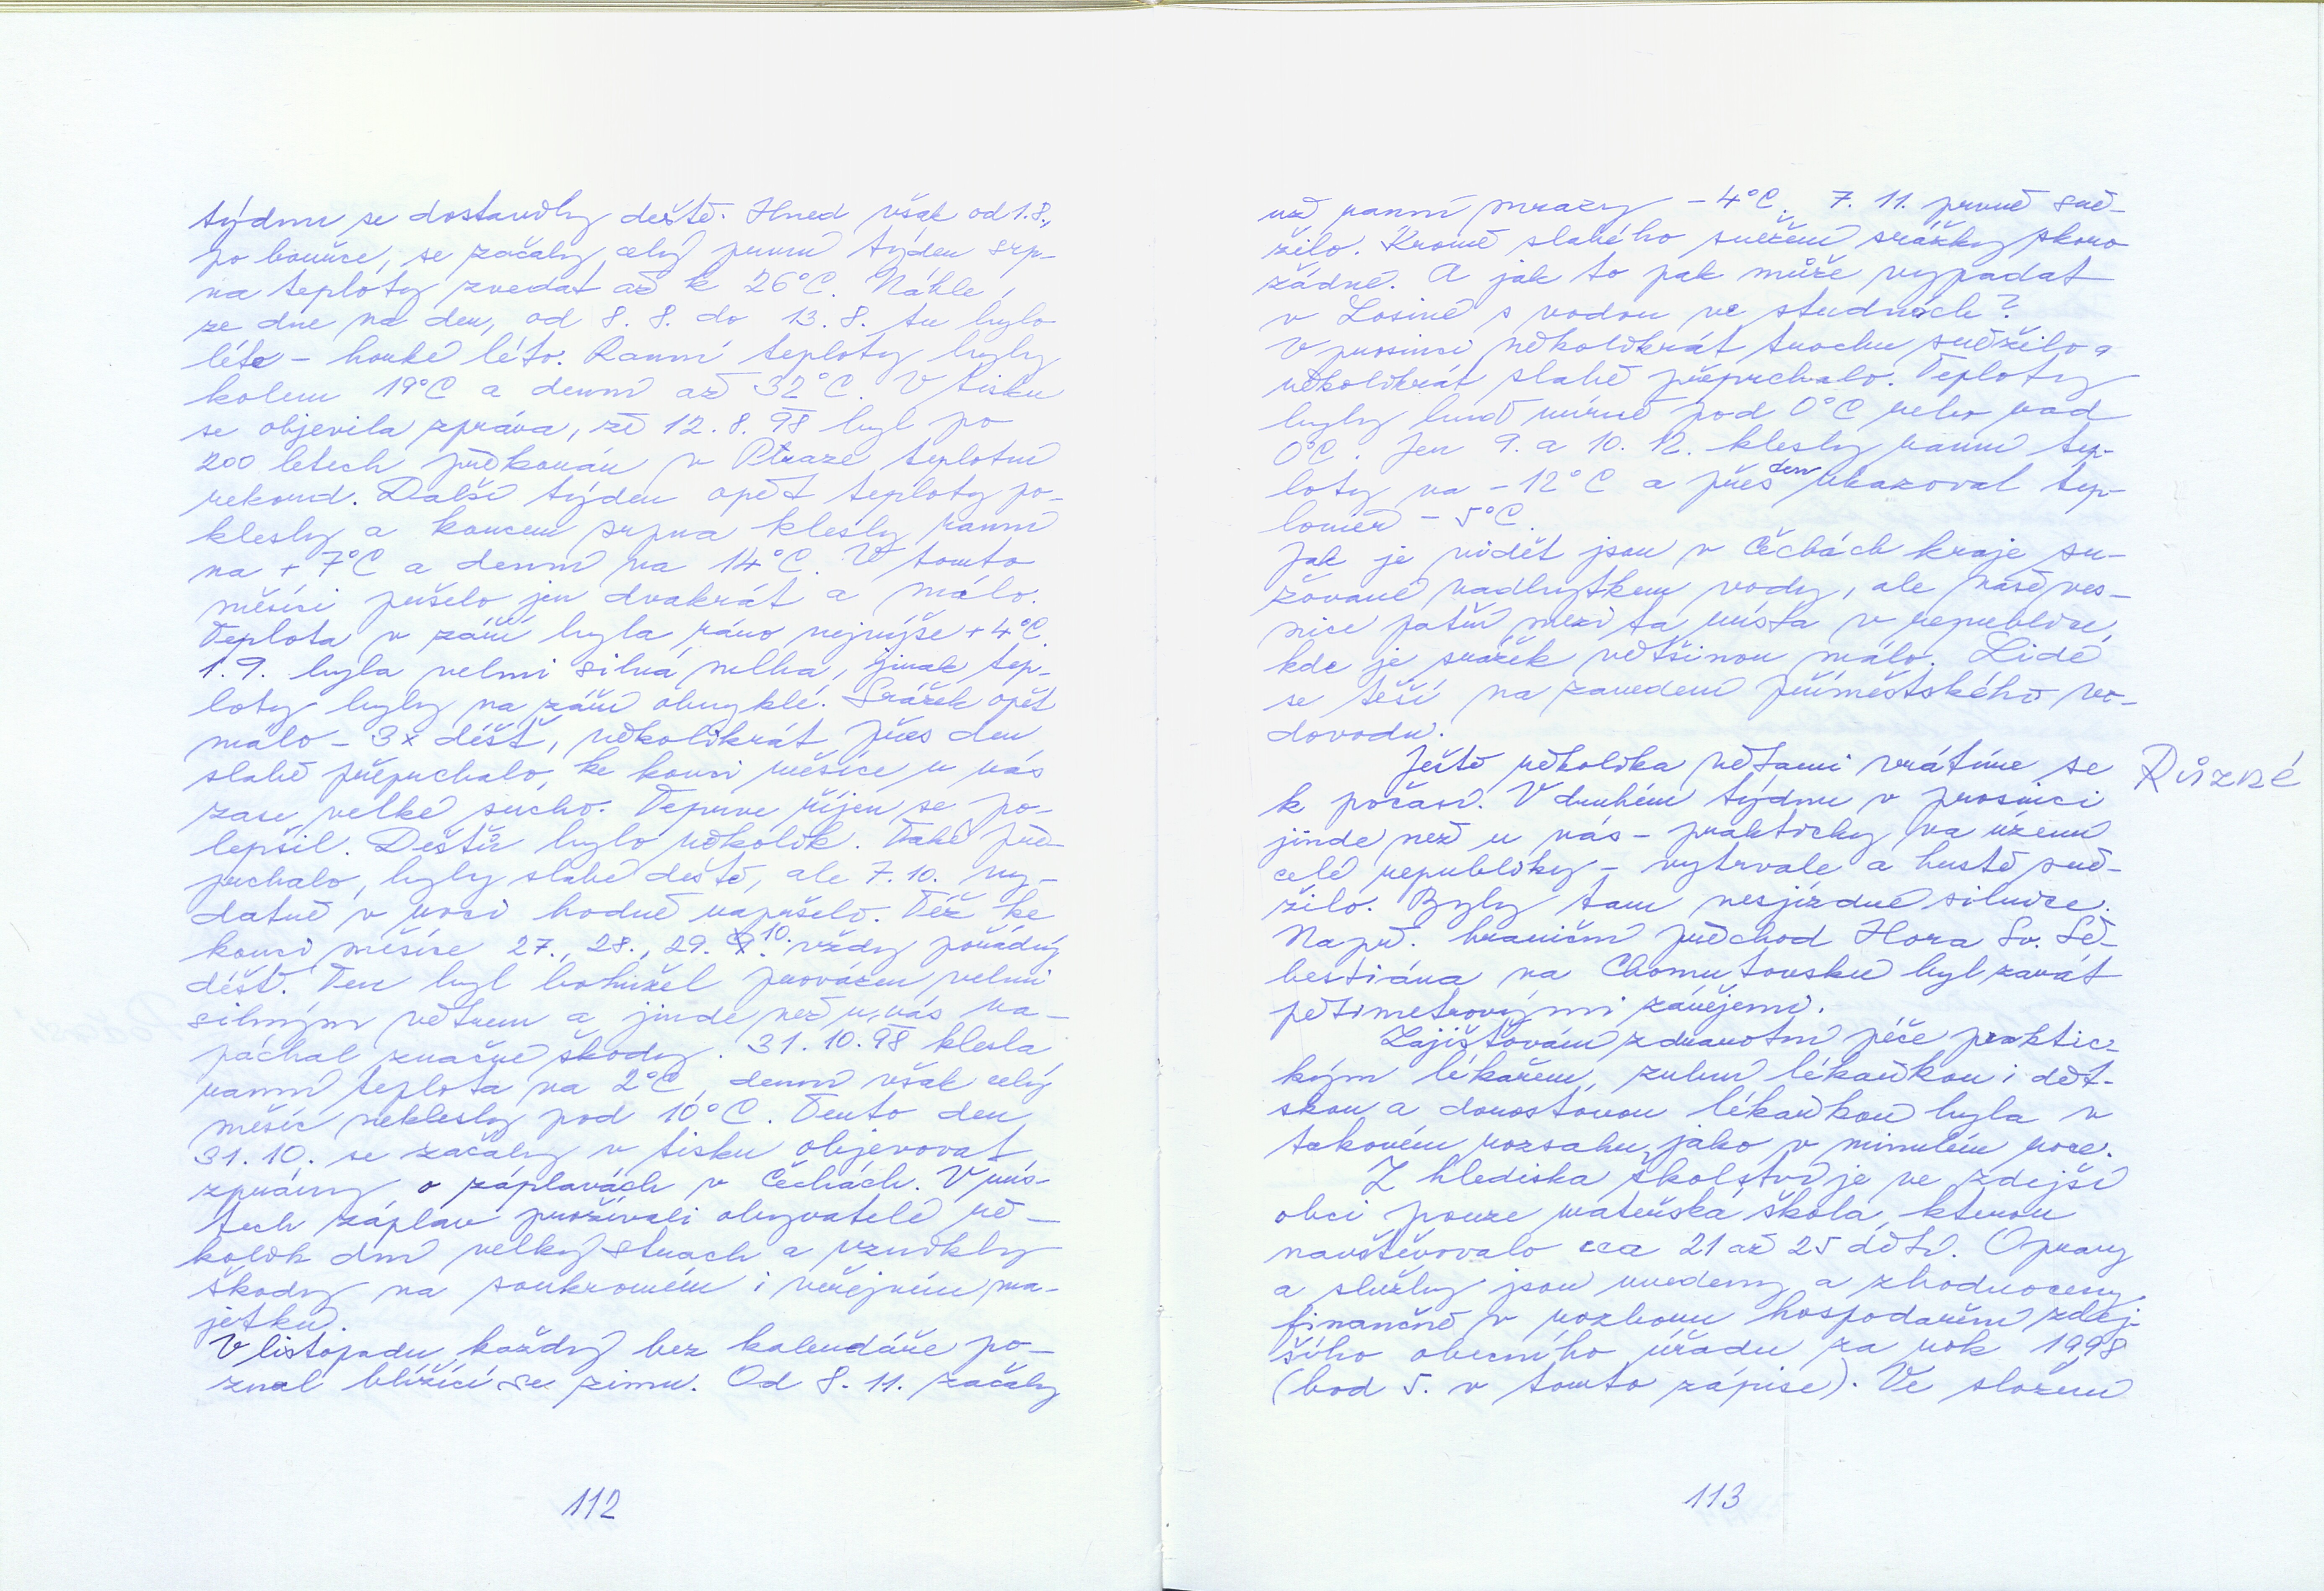 týdnu se dostavily deště. Hned však od 1.8.,
po bouřce, se začaly celý první týden srp-
na teploty zvedat až k 26°C. Náhle,
ze dne na den, od 8. 8. do 13. 8. tu bylo
léto - horké léto. Ranní teploty byly
kolem 19°C a denní až 32°C. V tisku
se objevila zpráva, že 12. 8. 98 byl po
200 letech překonán v Praze teplotní
rekord. Další týden opět teploty po-
klesly a koncem srpna klesly ranní
na + 7°C a denní na 14°C. V tomto
měsíci pršelo jen dvakrát a málo.
Teplota v září byla ráno nejníže + 4°C.
1. 9. byla velmi silná mlha, jinak tep-
loty byly na září obvyklé. Srážek opět
málo - 3x déšť, několikrát přes den
slabě přeprchalo, ke konci měsíce u nás
zase velké sucho. Teprve říjen se po-
lepšil. Dešťů bylo několik. Také pře-
prchalo, byly slabé deště, ale 7. 10. vy-
datně v noci hodně napršelo. Též ke
konci měsíce 27., 28., 29. 10. vždy pořádný
déšť. Ten byl bohužel provázen velmi
silným větrem a jinde než u nás na-
páchal značné škody. 31. 10. 98 klesla
ranní teplota na 2°C, denní však celý
měsíc neklesly pod 10°C. Tento den
31. 10. se začaly v tisku objevovat
zprávy o záplavách v Čechách. V mís-
tech záplav prožívali obyvatelé ně-
kolik dní velký strach a vznikly
škody na soukromém i veřejném ma-
jetku.
V listopadu každý bez kalendáře po-
znal blížící se zimu. Od 8. 11. začaly
112
už ranní mrazy - 4°C. 7. 11. prvně sně-
žilo. Kromě slabého sněžení srážky skoro
žádné. A jak to pak může vypadat
v Losiné s vodou ve studnách?
V prosinci několikrát trochu sněžilo a
několikrát slabě přeprchalo. Teploty
byly buď mírně pod 0°C nebo nad
0°C. Jen 9. a 10. 12. klesly ranní tep-
loty na - 12°C a přes den ukazoval tep-
loměr - 5°C.
Jak je vidět jsou v Čechách kraje su-
žované nadbytkem vody, ale naše ves-
nice patří mezi ta místa v republice,
kde je srážek většinou málo. Lidé
se těší na zavedení příměstského vo-
dovodu.
Různé
Ještě několika větami vrátíme se
k počasí. V druhém týdnu v prosinci
jinde než u nás - prakticky na území
celé republiky - vytrvale a hustě sně-
žilo. Byly tam nesjízdné silnice.
Např. hraniční přechod Hora Sv. Še-
bestiána na Chomutovsku byl zavát
pětimetrovými závějemi.
Zajišťování zdravotní péče praktic-
kým lékařem, zubní lékařkou i dět-
skou a dorostovou lékařkou byla v
takovém rozsahu, jako v minulém roce.
Z hlediska školství je ve zdejší
obci pouze mateřská škola, kterou
navštěvovalo cca 21 až 25 dětí. Opravy
a služby jsou uvedeny a zhodnoceny
finančně v rozboru hospodaření zdej-
šího obecního úřadu za rok 1998
(bod 5. v tomto zápise). Ve složení
113